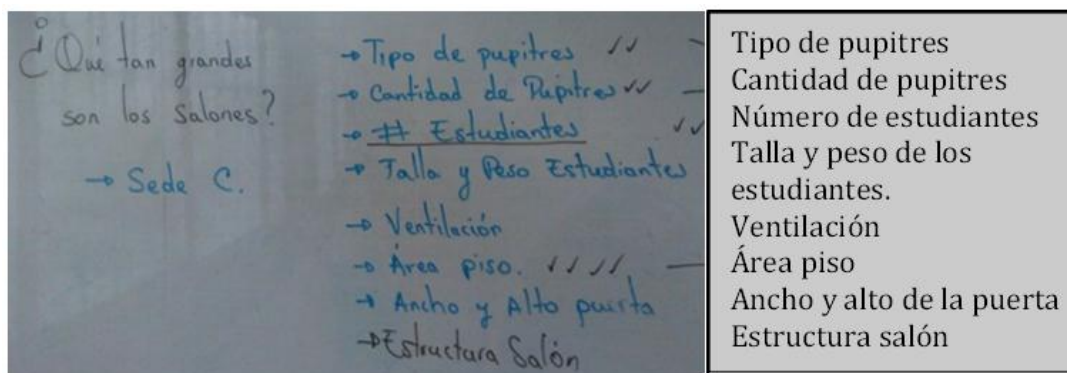 ¿Qué tan grandes
son los Salones?
→ Sede C.
→ Tipo de pupitres ✓✓
→ Cantidad de Pupitres ✓✓
→ # Estudiantes ✓✓
→ Talla y Peso Estudiantes
→ Ventilación
→ Área piso. ✓✓✓✓
→ Ancho y Alto puerta
→ Estructura Salón
Tipo de pupitres
Cantidad de pupitres
Número de estudiantes
Talla y peso de los
estudiantes.
Ventilación
Área piso
Ancho y alto de la puerta
Estructura salón